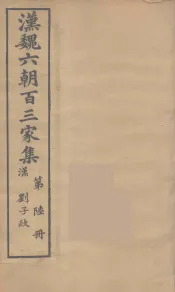 漢魏六朝百三家集
漢 劉子政
第陸冊